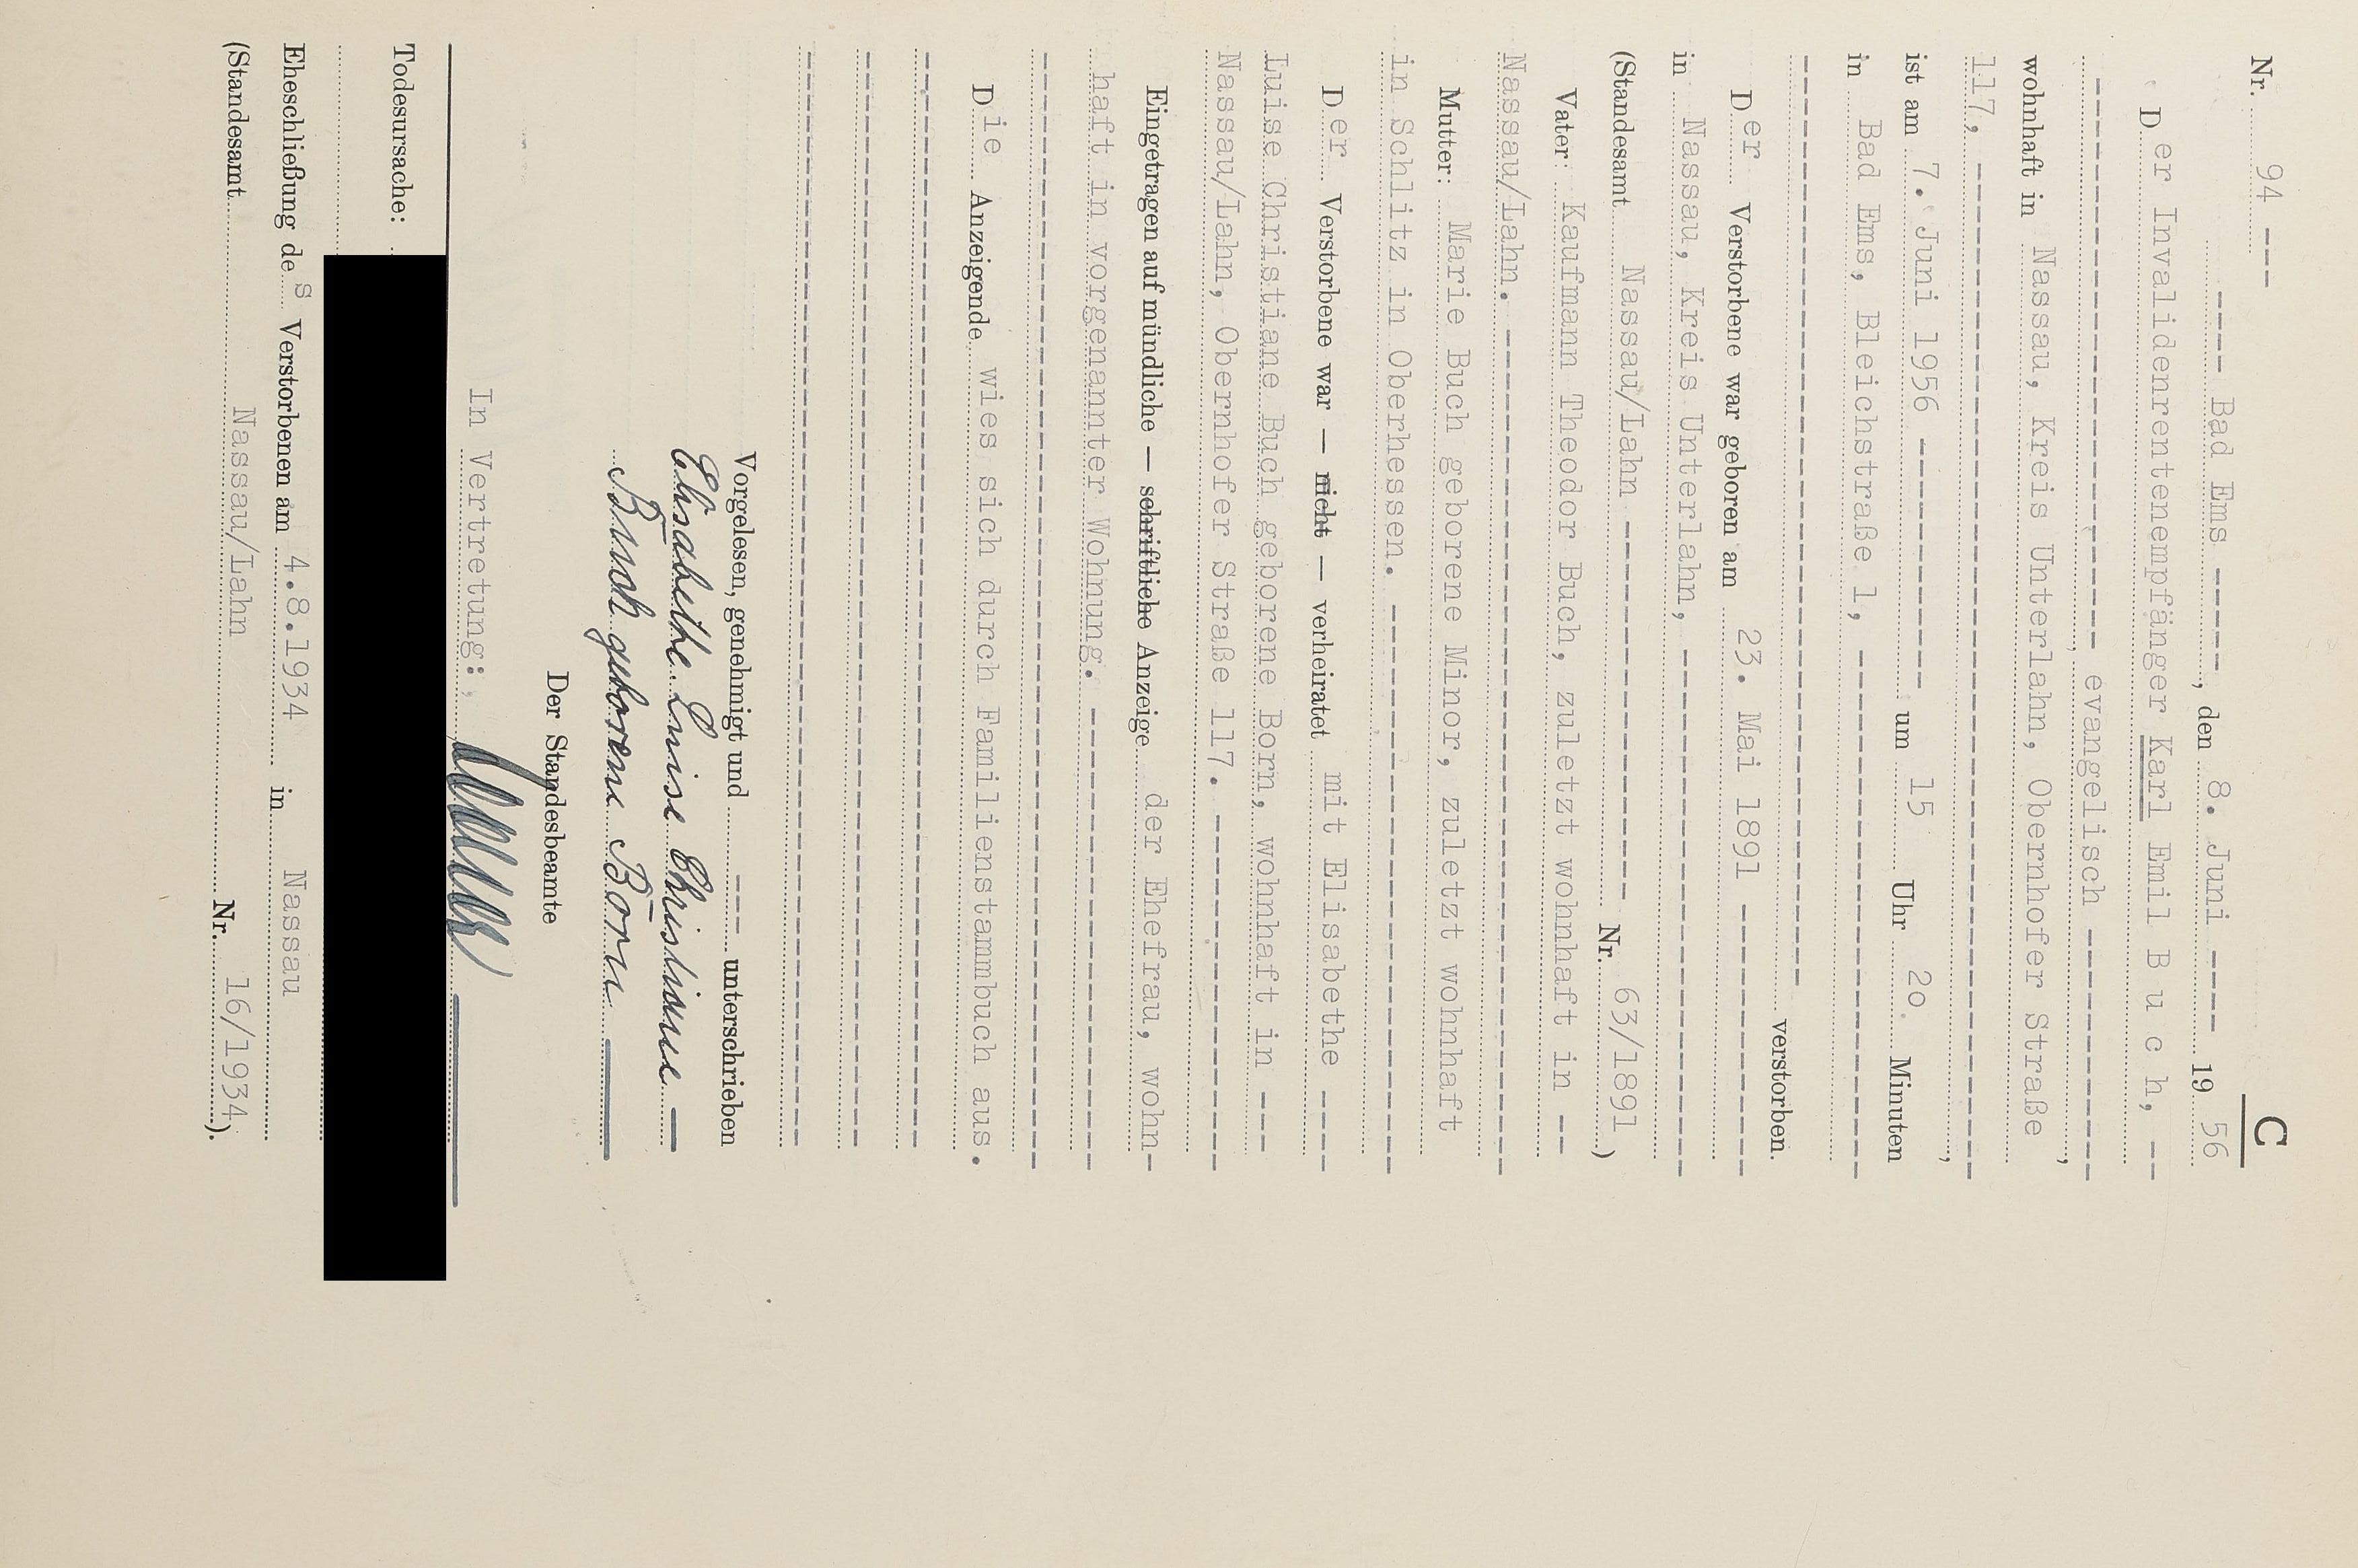 C
Nr. 94 ---
----- Bad Ems -----, den 8. Juni ---- 19 56
Der Invalidenrentenempfänger Karl Emil B u c h, --
---------------------------------, evangelisch ---------
wohnhaft in Nassau, Kreis Unterlahn, Obernhofer Straße,
117, ------------------------------------------------
ist am 7. Juni 1956 ------------ um 15 Uhr 2o Minuten,
in Bad Ems, Bleichstraße 1, --------------------------
------------------------------------------- verstorben.
Der Verstorbene war geboren am 23. Mai 1891 ------------
in Nassau, Kreis Unterlahn, --------------------------
(Standesamt Nassau/Lahn ------------------ Nr. 63/1891)
Vater: Kaufmann Theodor Buch, zuletzt wohnhaft in --
Nassau/Lahn. ----------------------------------------
Mutter: Marie Buch geborene Minor, zuletzt wohnhaft
in Schlitz in Oberhessen. ---------------------------
Der Verstorbene war — nicht — verheiratet mit Elisabethe ----
Luise Christiane Buch geborene Born, wohnhaft in ---
Nassau/Lahn, Obernhofer Straße 117. -----------------
Eingetragen auf mündliche — schriftliche Anzeige der Ehefrau, wohn-
haft in vorgenannter Wohnung. -----------------------
------------------------------------------------------
Die Anzeigende wies sich durch Familienstammbuch aus.
------------------------------------------------------
------------------------------------------------------
------------------------------------------------------
Vorgelesen, genehmigt und --- unterschrieben
Elisabethe Luise Christiane —
Buch geborene Born —
Der Standesbeamte
In Vertretung:
Todesursache:
Eheschließung des Verstorbenen am 4.8.1934 in Nassau
(Standesamt Nassau/Lahn Nr. 16/1934).